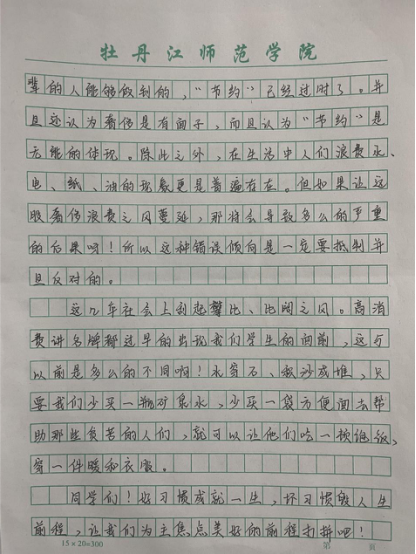 牡丹江师范学院
辈的人能够做到的，“节约”已经过时了。并
且还认为奢侈是有面子，而且认为“节约”是
无能的体现。除此之外，在生活中人们浪费水、
电、纸、油的现象更是普遍存在。但如果让这
股奢侈浪费之风蔓延，那将会导致多么的严重
的后果啊！所以这种错误倾向是一定要抵制并
且反对的。
这几年社会上刮起攀比、比阔之风。高消
费讲名牌都过早的出现我们学生的面前，这可
以前是多么的不同啊！水穿石、积沙成堆，只
要我们少买一瓶矿泉水，少买一袋方便面去帮
助那些贫苦的人们，就可以让他们吃一顿饱饭，
穿一件暖和衣服。
同学们！好习惯成就一生，坏习惯毁人生
前程，让我们为主焦点美好的前程打拼吧！
15×20=300
第 页